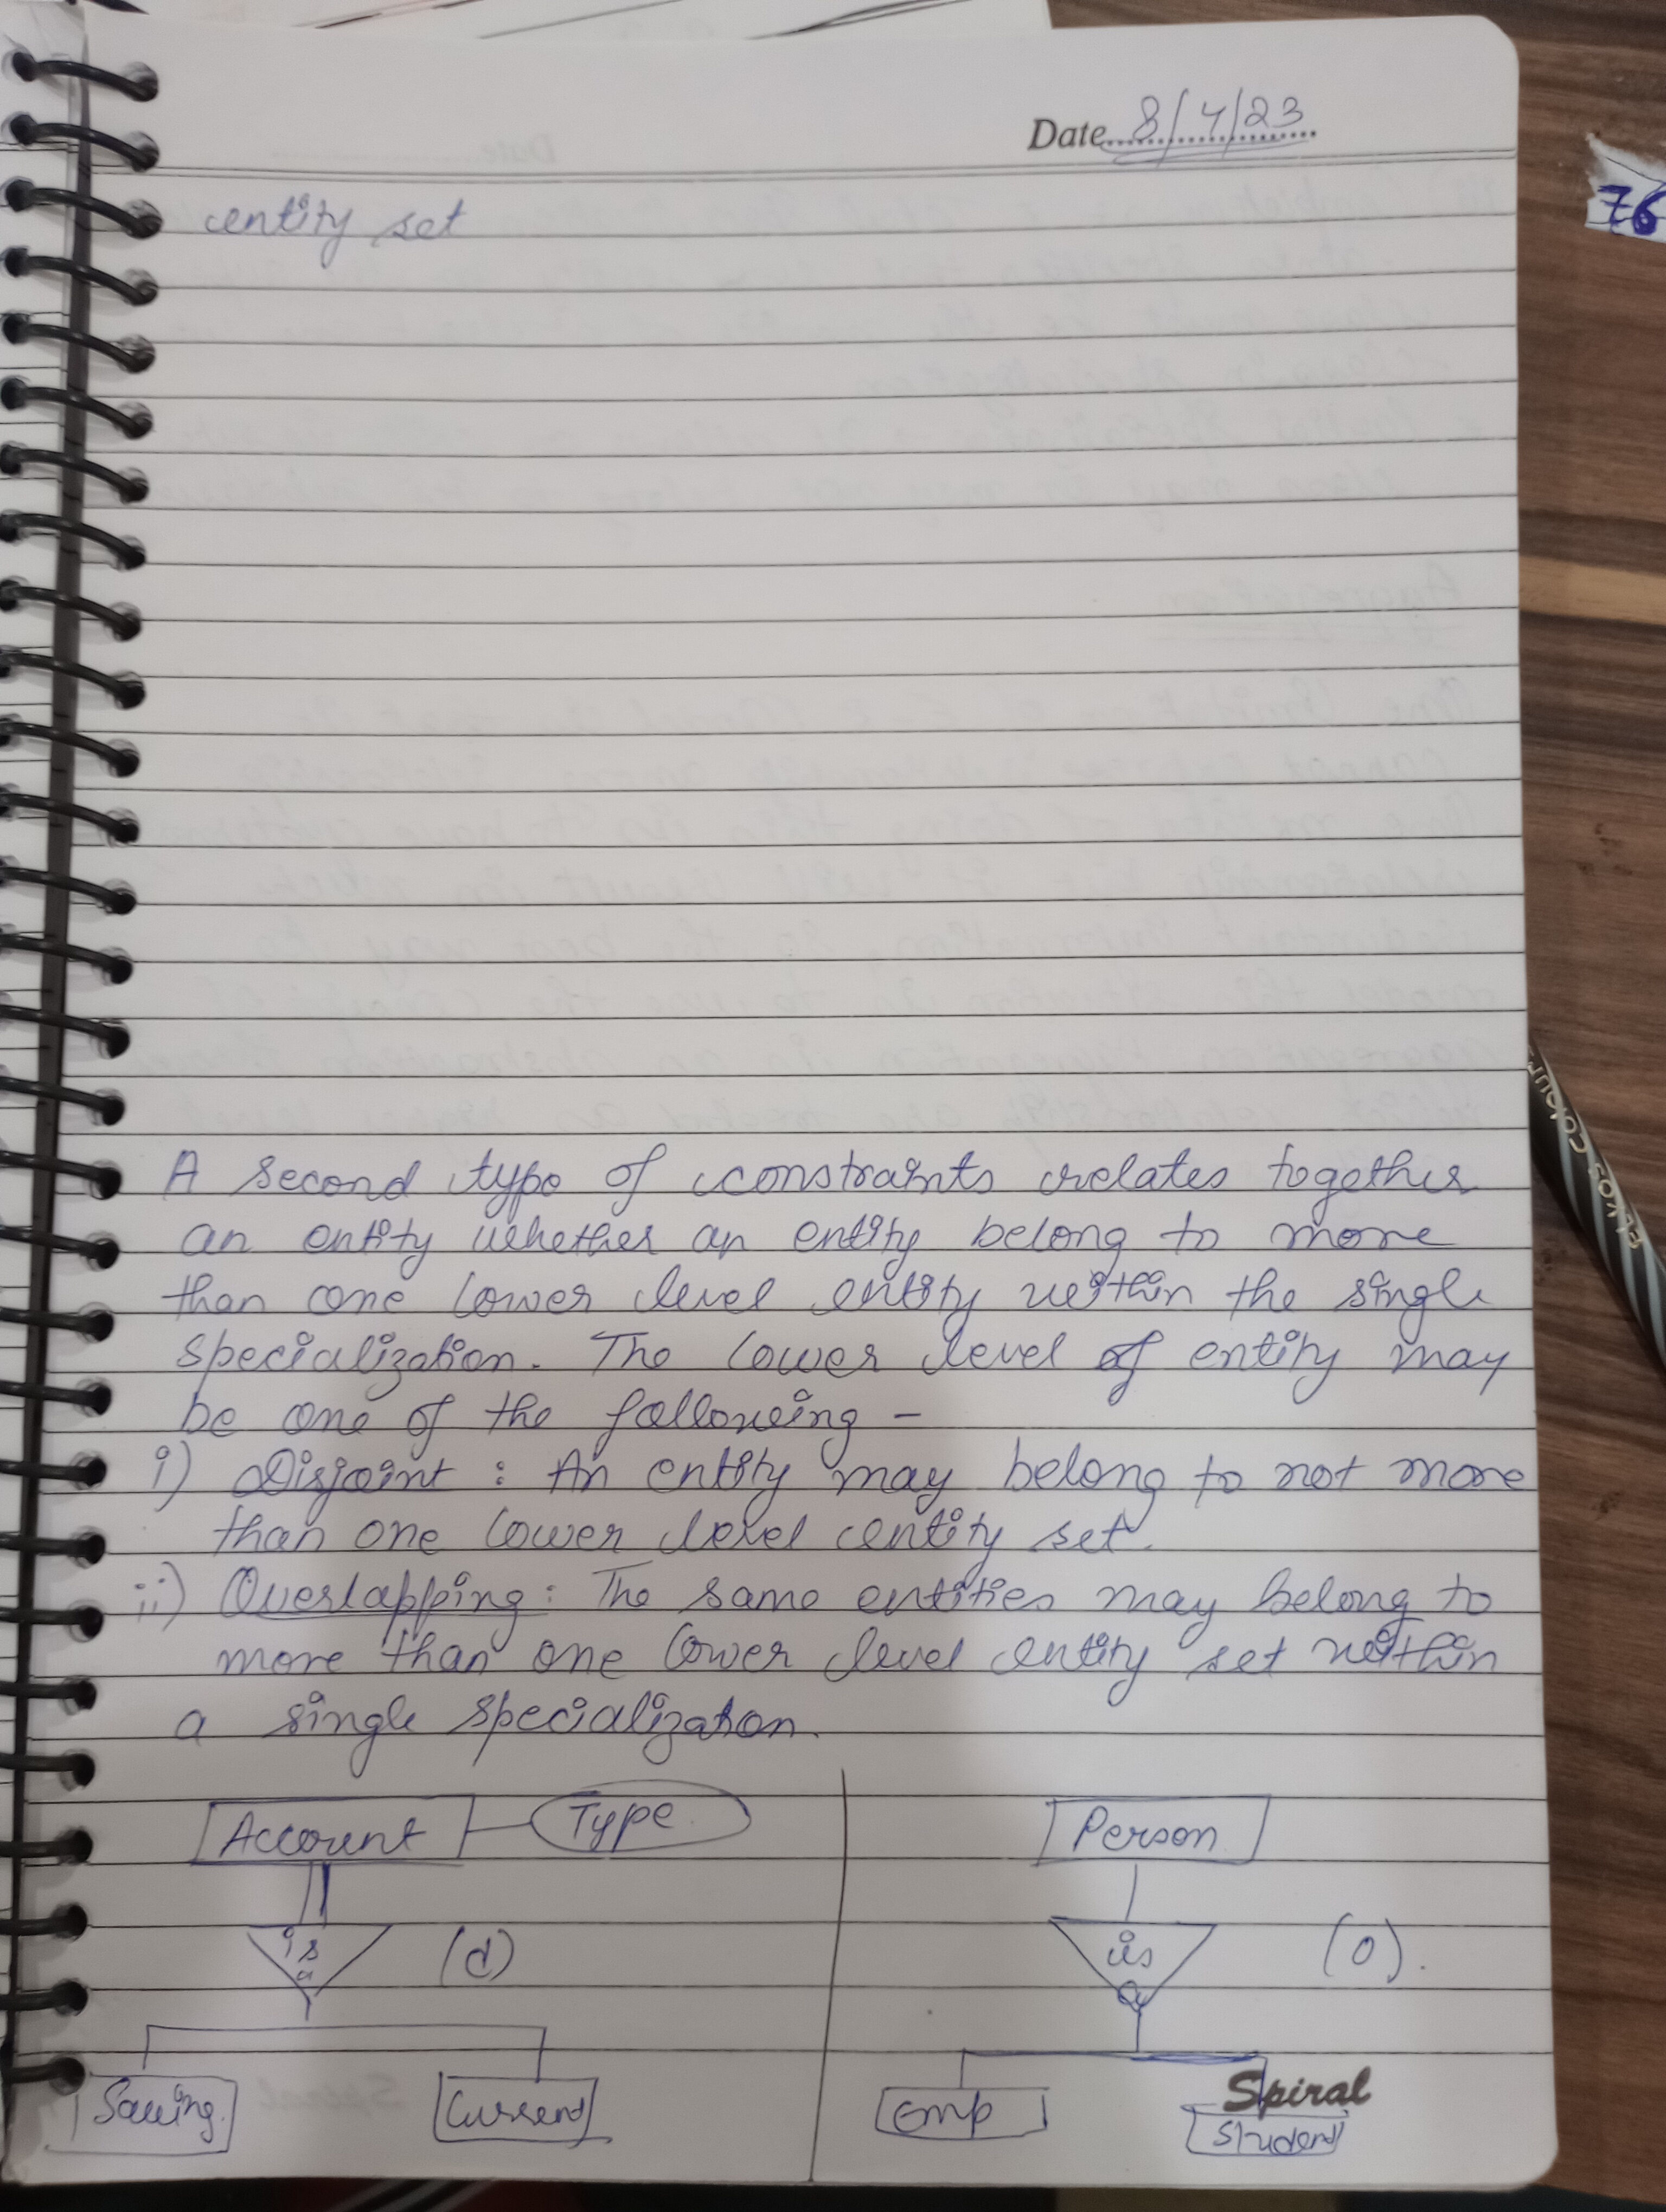 Date 8/4/23
76
entity set
A second type of constraints relates together
an entity whether an entity belong to more
than one lower level entity within the single
specialization. The lower level of entity may
be one of the following -
i) Disjoint : An entity may belong to not more
than one lower level entity set.
ii) Overlapping : The same entities may belong to
more than one lower level entity set within
a single specialization.
Account Type Person
is a (d) is a (o).
Saving Current emp Student
Spiral